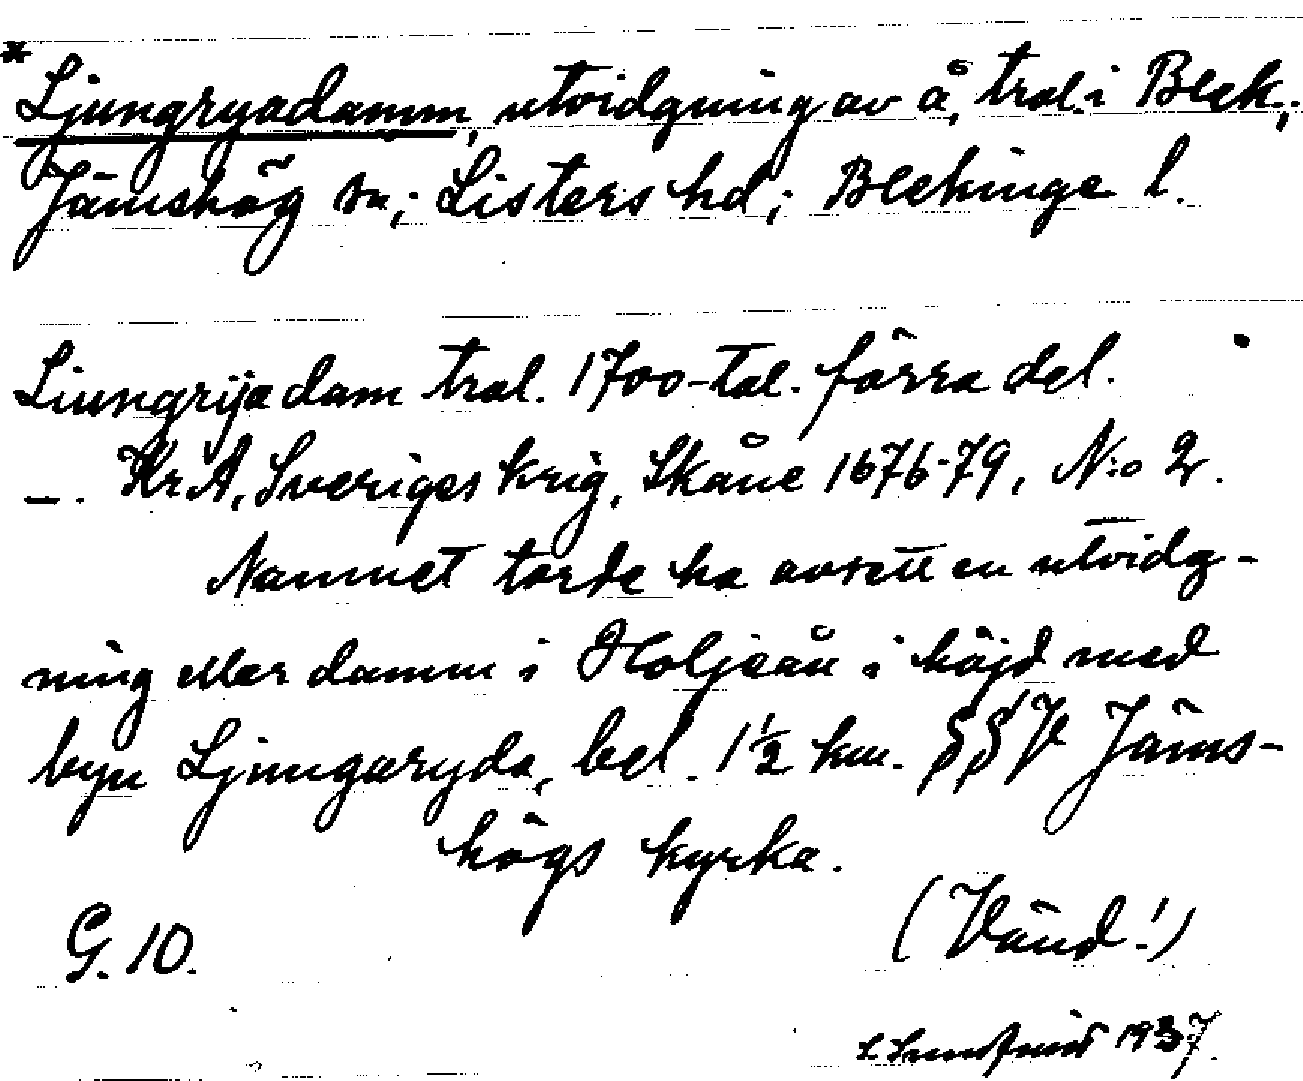 * Ljungryadamm, utvidgning av å, trol. i Blek.,
Jämshög sn; Listers hd; Blekinge l.
Liungrijadam trol. 1700-tal. förra del.
—. KrA, Sveriges krig, Skåne 1676-79, N:o 2.
Namnet torde ha avsett en utvidg-
ning eller damm i Holjeån i höjd med
byn Ljungaryda, bel. 1½ km. SSV Jäms-
högs kyrka.
G. 10.
(Vänd!)
1937.